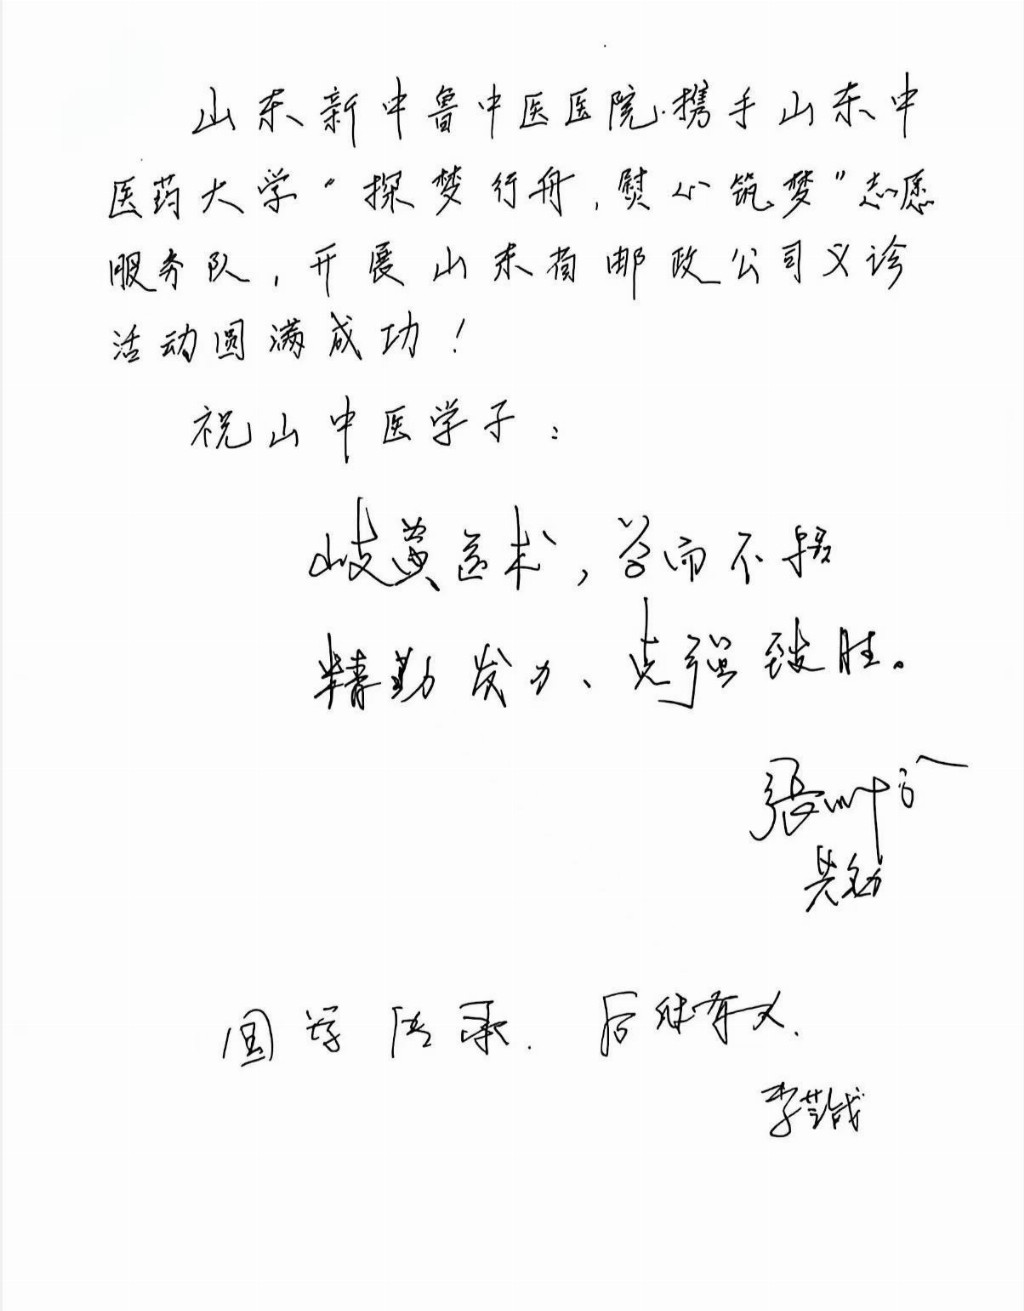 山东新中鲁中医医院携手山东中
医药大学“探梦行舟,熨心筑梦”志愿
服务队,开展山东省邮政公司义诊
活动圆满成功!
祝山中医学子:
岐黄医术,学而不辍
精勤发力、克强致胜。
張
国学传承.后继有人.
李